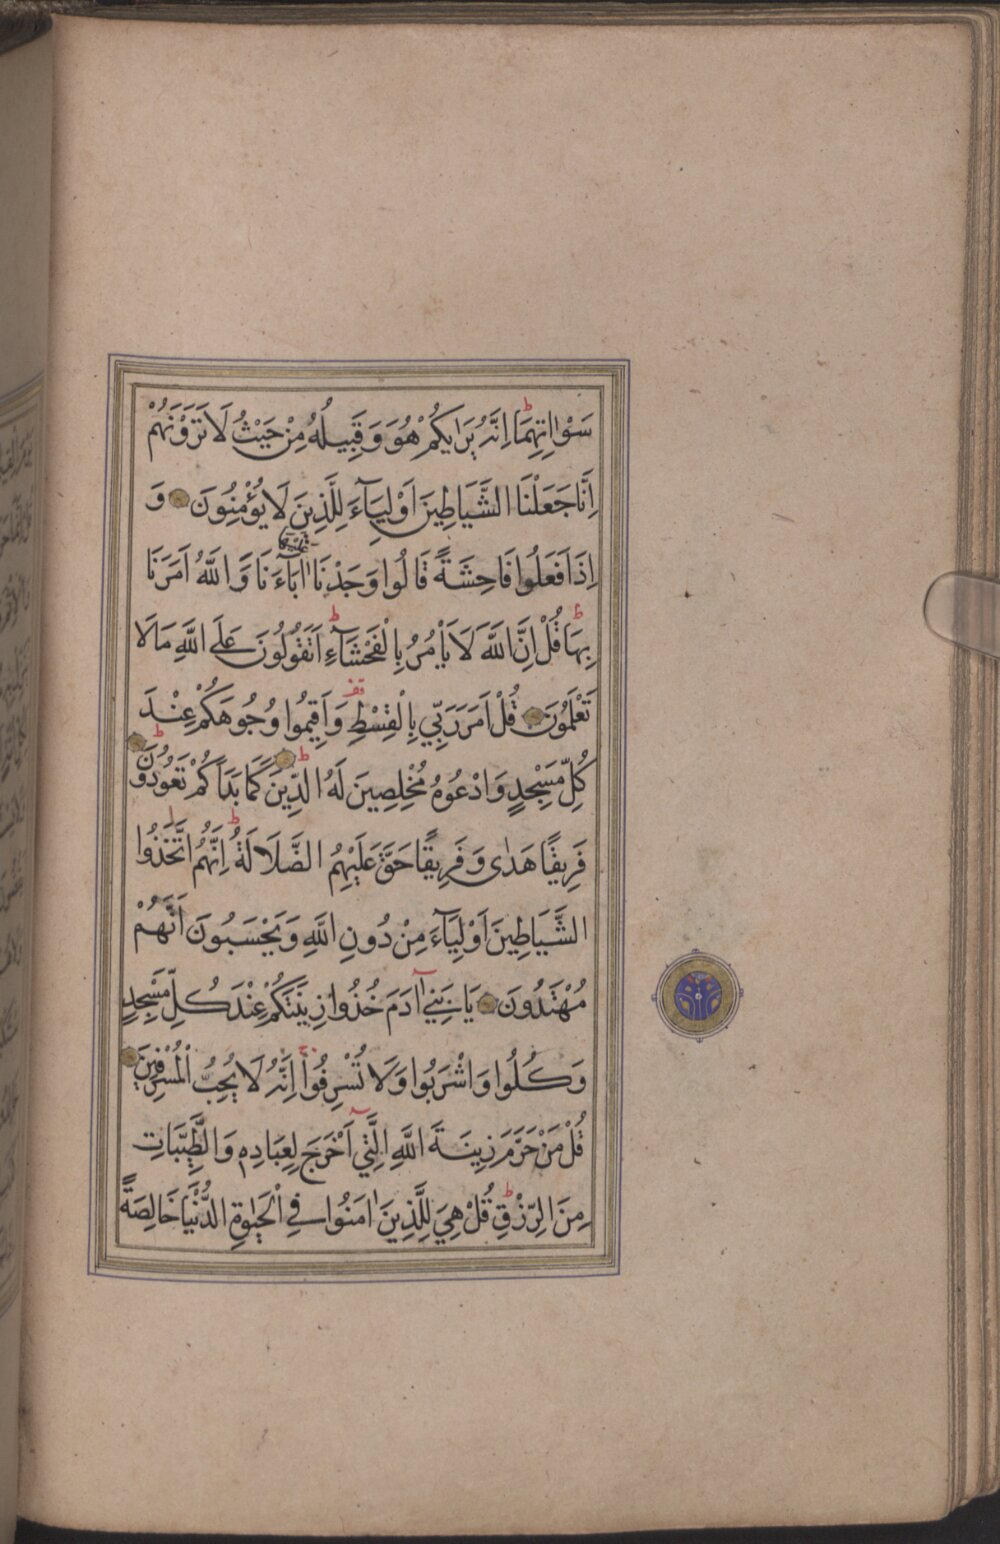 سَوْاٰتِهِمَا ط اِنَّهُ يَرٰيكُمْ هُوَ وَقَبِيلُهُ مِنْ حَيْثُ لَا تَرَوْنَهُمْ
اِنَّا جَعَلْنَا الشَّيَاطِينَ اَوْلِيَآءَ لِلَّذِينَ لَا يُؤْمِنُونَ وَ
اِذَا فَعَلُوا فَاحِشَةً قَالُوا وَجَدْنَا عَلَيْهَا اٰبَآءَنَا وَاللّٰهُ اَمَرَنَا
بِهَا ط قُلْ اِنَّ اللّٰهَ لَا يَاْمُرُ بِالْفَحْشَآءِ ط اَتَقُولُونَ عَلَى اللّٰهِ مَا لَا
تَعْلَمُونَ قُلْ اَمَرَ رَبِّي بِالْقِسْطِ قف وَاَقِيمُوا وُجُوهَكُمْ عِنْدَ
كُلِّ مَسْجِدٍ وَادْعُوهُ مُخْلِصِينَ لَهُ الدِّينَ ط كَمَا بَدَاَكُمْ تَعُودُونَ ط
فَرِيقًا هَدٰى وَفَرِيقًا حَقَّ عَلَيْهِمُ الضَّلَالَةُ ط اِنَّهُمُ اتَّخَذُوا
الشَّيَاطِينَ اَوْلِيَآءَ مِنْ دُونِ اللّٰهِ وَيَحْسَبُونَ اَنَّهُمْ
مُهْتَدُونَ يَا بَنِي اٰدَمَ خُذُوا زِينَتَكُمْ عِنْدَ كُلِّ مَسْجِدٍ
وَكُلُوا وَاشْرَبُوا وَلَا تُسْرِفُوا ج اِنَّهُ لَا يُحِبُّ الْمُسْرِفِينَ
قُلْ مَنْ حَرَّمَ زِينَةَ اللّٰهِ الَّتِي اَخْرَجَ لِعِبَادِهِ وَالطَّيِّبَاتِ
مِنَ الرِّزْقِ ط قُلْ هِيَ لِلَّذِينَ اٰمَنُوا فِي الْحَيٰوةِ الدُّنْيَا خَالِصَةً